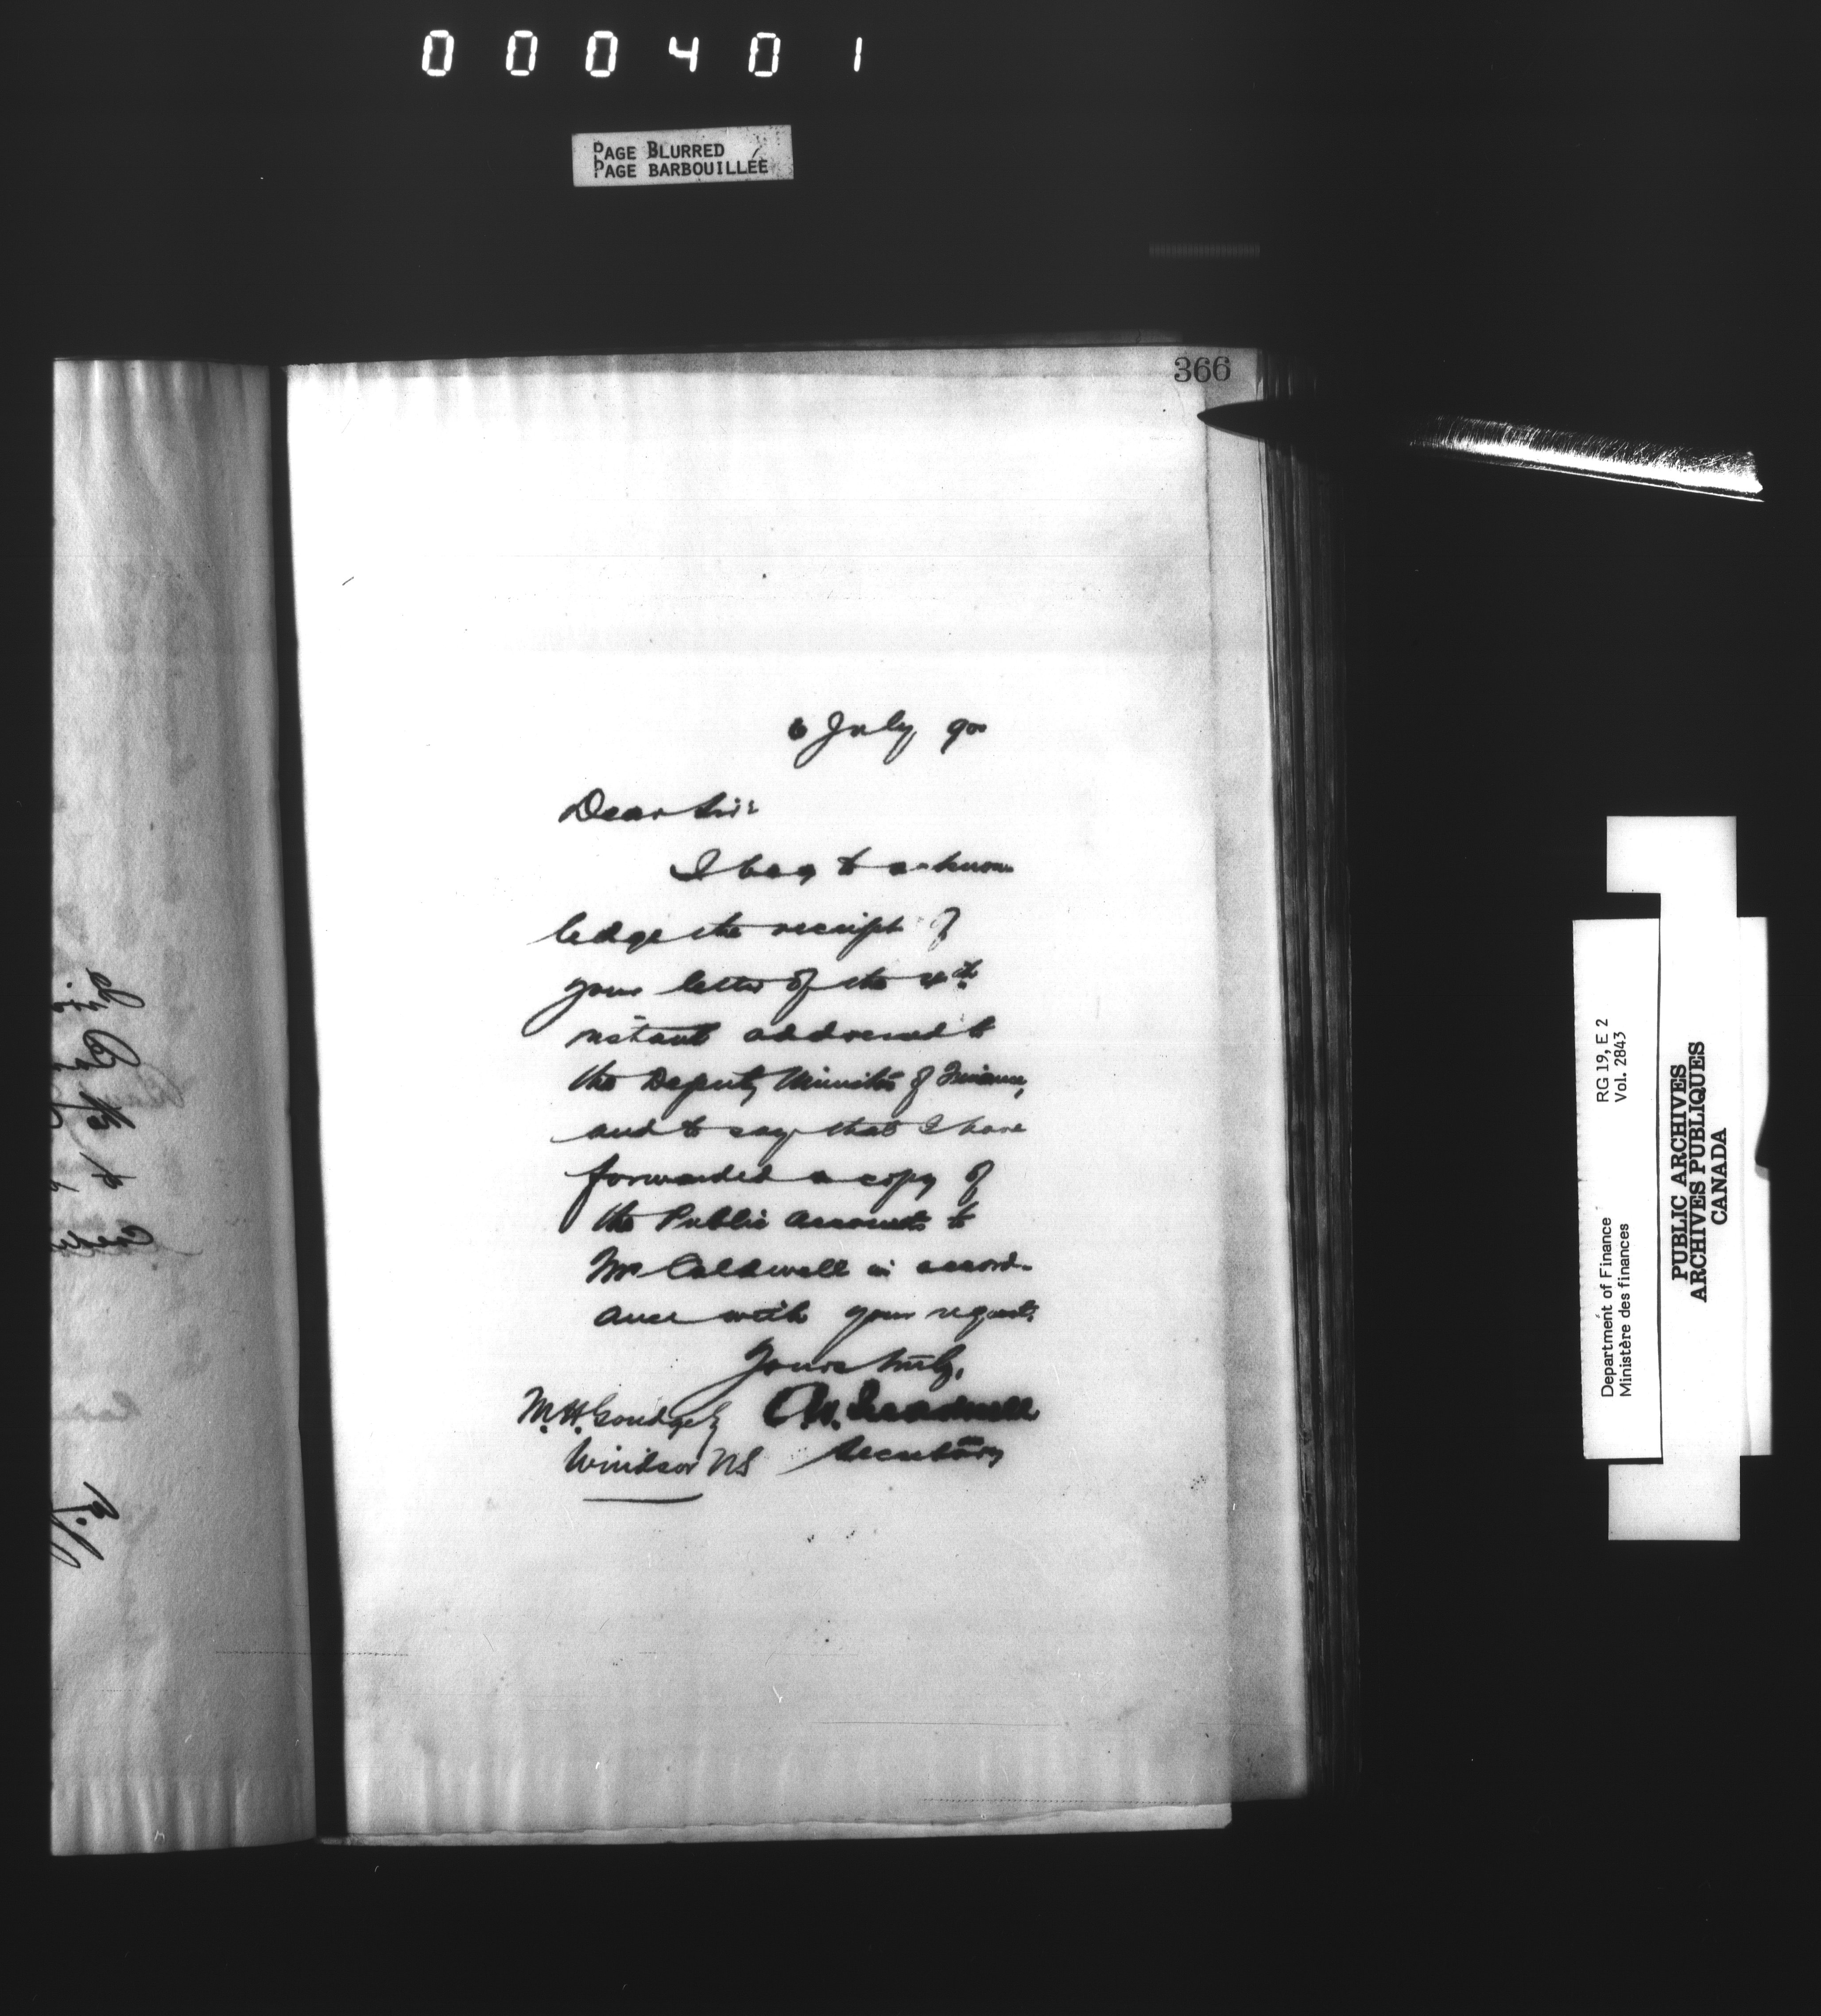 000401
PAGE BLURRED
PAGE BARBOUILLÉE
366
6 July 90
Dear Sir:
I beg to acknow
ledge the receipt of
your letter of the 4th
instant addressed to
the Deputy Minister of Finance,
and to say that I have
forwarded a copy of
the Public Accounts to
Mr Caldwell in accord-
ance with your request.
Yours truly,
M. H. Goudge Esq
Windsor NS
Secretary
RG 19, E 2
Vol. 2843
Department of Finance
Ministère des finances
PUBLIC ARCHIVES
ARCHIVES PUBLIQUES
CANADA